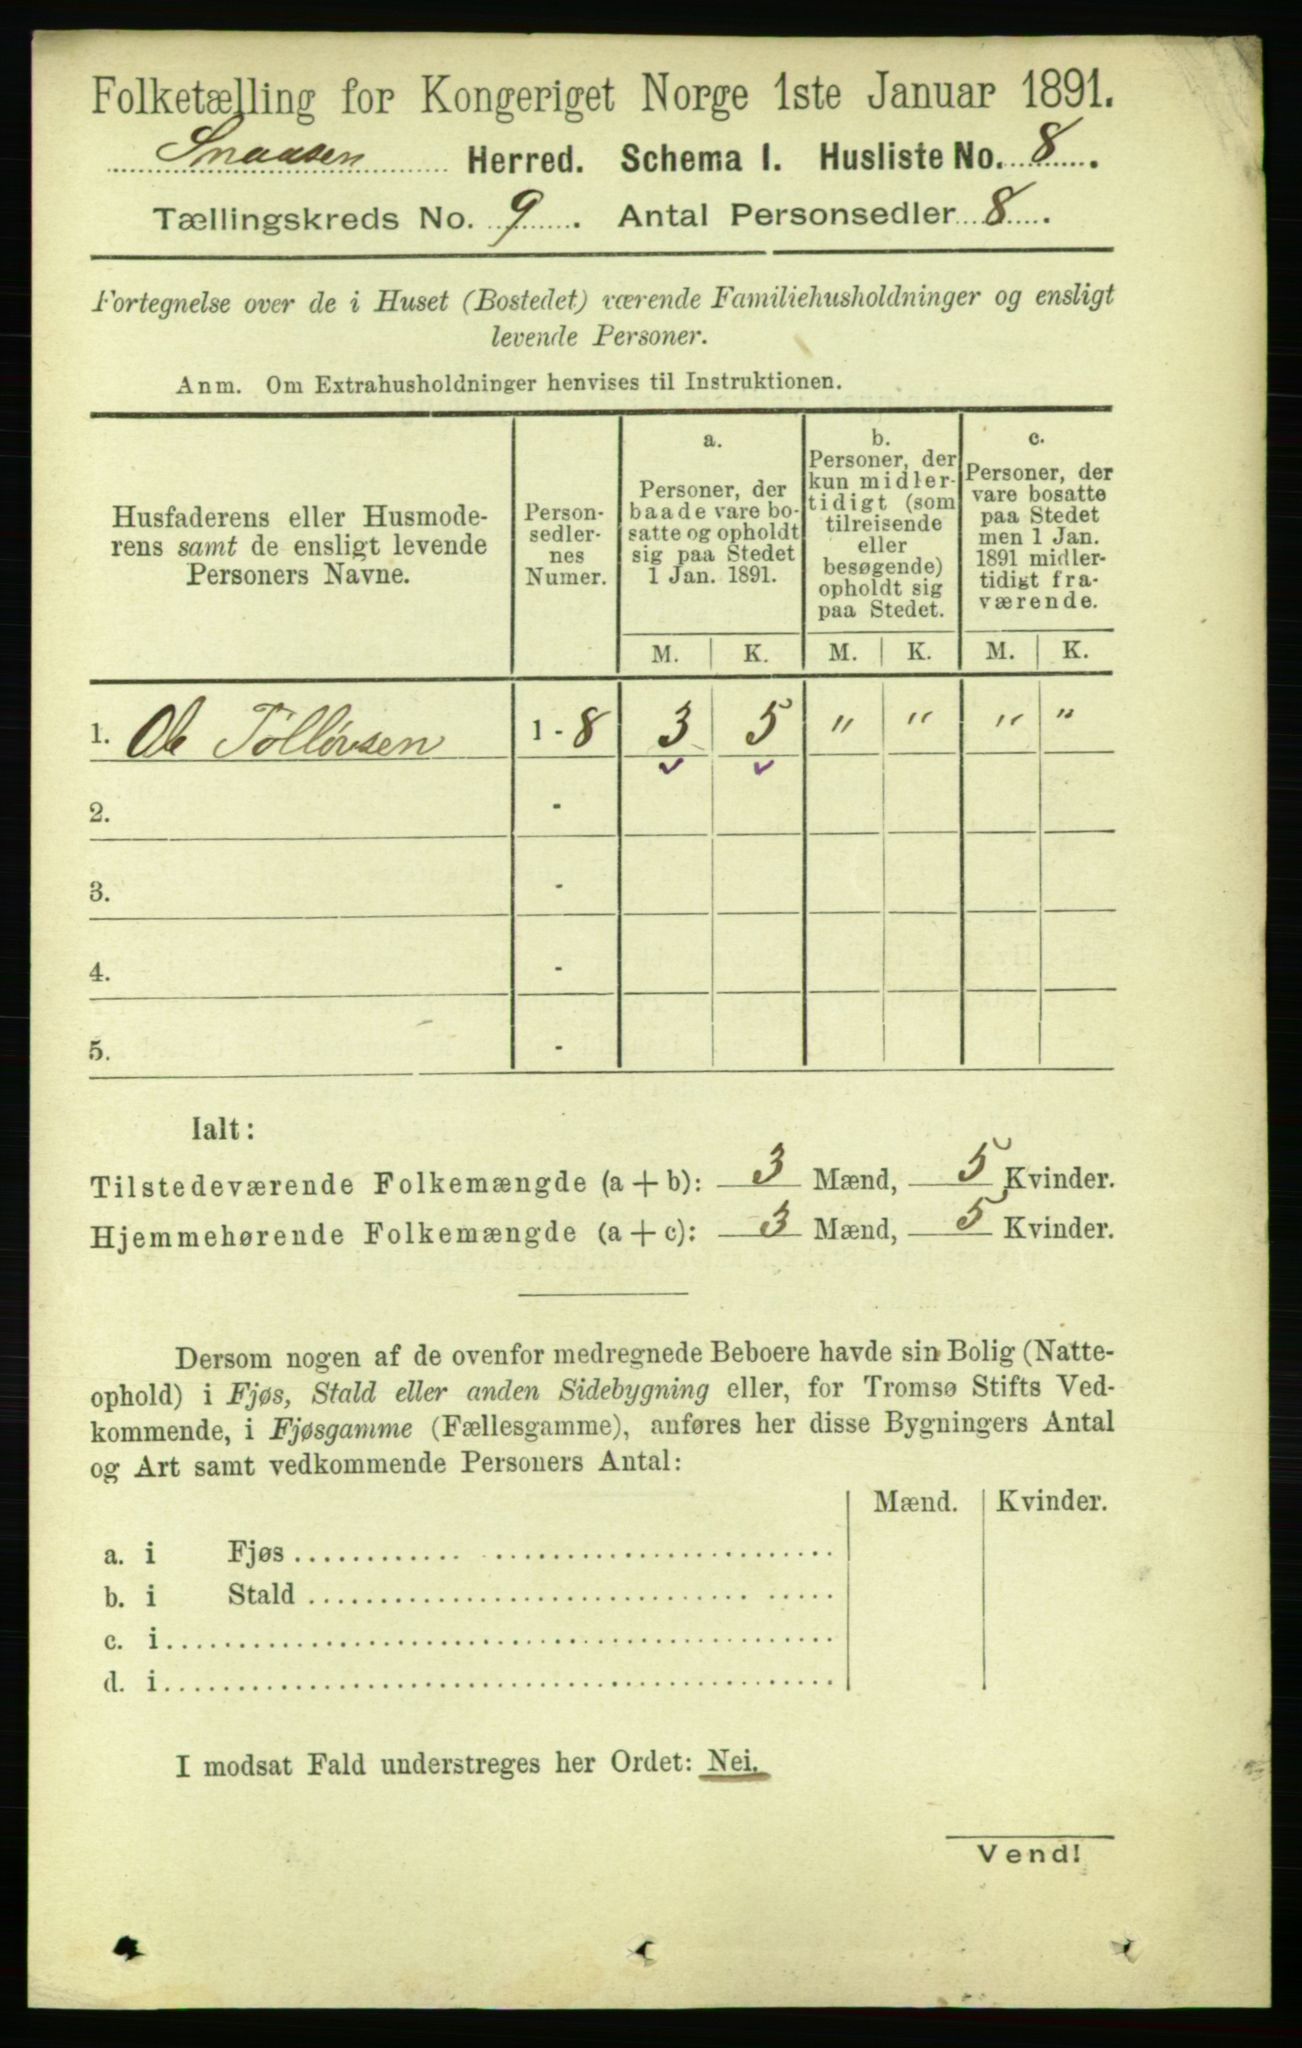 Folketælling for Kongeriget Norge 1ste Januar 1891.
Snaasen Herred. Schema I. Husliste No. 8.
Tællingskreds No. 9. Antal Personsedler 8.
Fortegnelse over de i Huset (Bostedet) værende Familiehusholdninger og ensligt
levende Personer.
Anm. Om Extrahusholdninger henvises til Instruktionen.
Husfaderens eller Husmode-
rens samt de ensligt levende
Personers Navne.
Person-
sedler-
nes
Numer.
a.
Personer, der
baade vare bo-
satte og opholdt
sig paa Stedet
1 Jan. 1891.
b.
Personer, der
kun midler-
tidigt (som
tilreisende
eller
besøgende)
opholdt sig
paa Stedet.
c.
Personer, der
vare bosatte
paa Stedet
men 1 Jan.
1891 midler-
tidigt fra-
værende.
M. K. M. K. M. K.
1. Ole Tollevsen 1 - 8 3 5 " " " "
2. -
3. -
4. -
5. -
Ialt:
Tilstedeværende Folkemængde (a + b): 3 Mænd, 5 Kvinder.
Hjemmehørende Folkemængde (a + c): 3 Mænd, 5 Kvinder.
Dersom nogen af de ovenfor medregnede Beboere havde sin Bolig (Natte-
ophold) i Fjøs, Stald eller anden Sidebygning eller, for Tromsø Stifts Ved-
kommende, i Fjøsgamme (Fællesgamme), anføres her disse Bygningers Antal
og Art samt vedkommende Personers Antal:
Mænd. Kvinder.
a. i Fjøs
b. i Stald
c. i
d. i
I modsat Fald understreges her Ordet: Nei.
Vend!